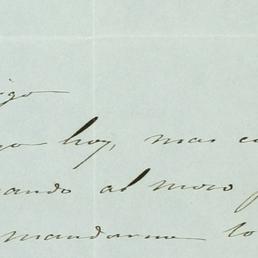 igo
go hoy, mas co
ando al moro
mandarme lo